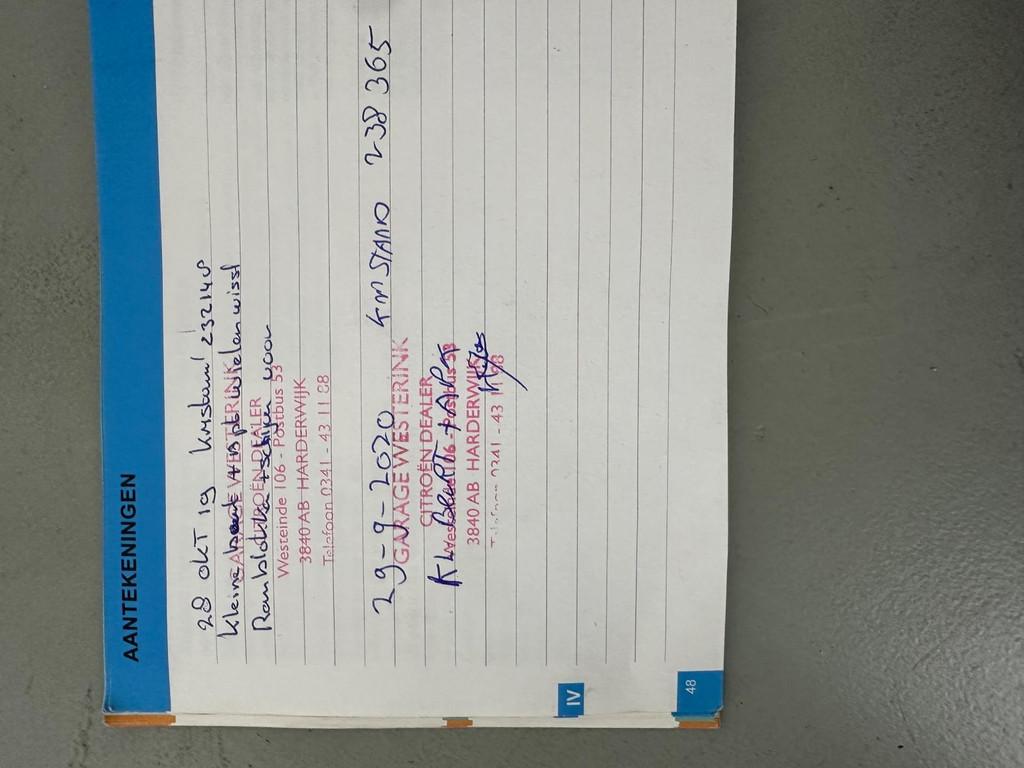 AANTEKENINGEN
28 OKT 19 kmstand 232140
Kleine beurt + wielen wissl
GARAGE WESTERINK
Remblokken + schijven voor
CITROËN DEALER
Westeinde 106 - Postbus 53
3840 AB HARDERWIJK
Telefoon 0341 - 43 11 88
29-9-2020 KM STAND 238 365
GARAGE WESTERINK
CITROËN DEALER
KL BEURT + APK
Westeinde 106 - Postbus 53
3840 AB HARDERWIJK
Telefoon 0341 - 43 11 88
IV
48